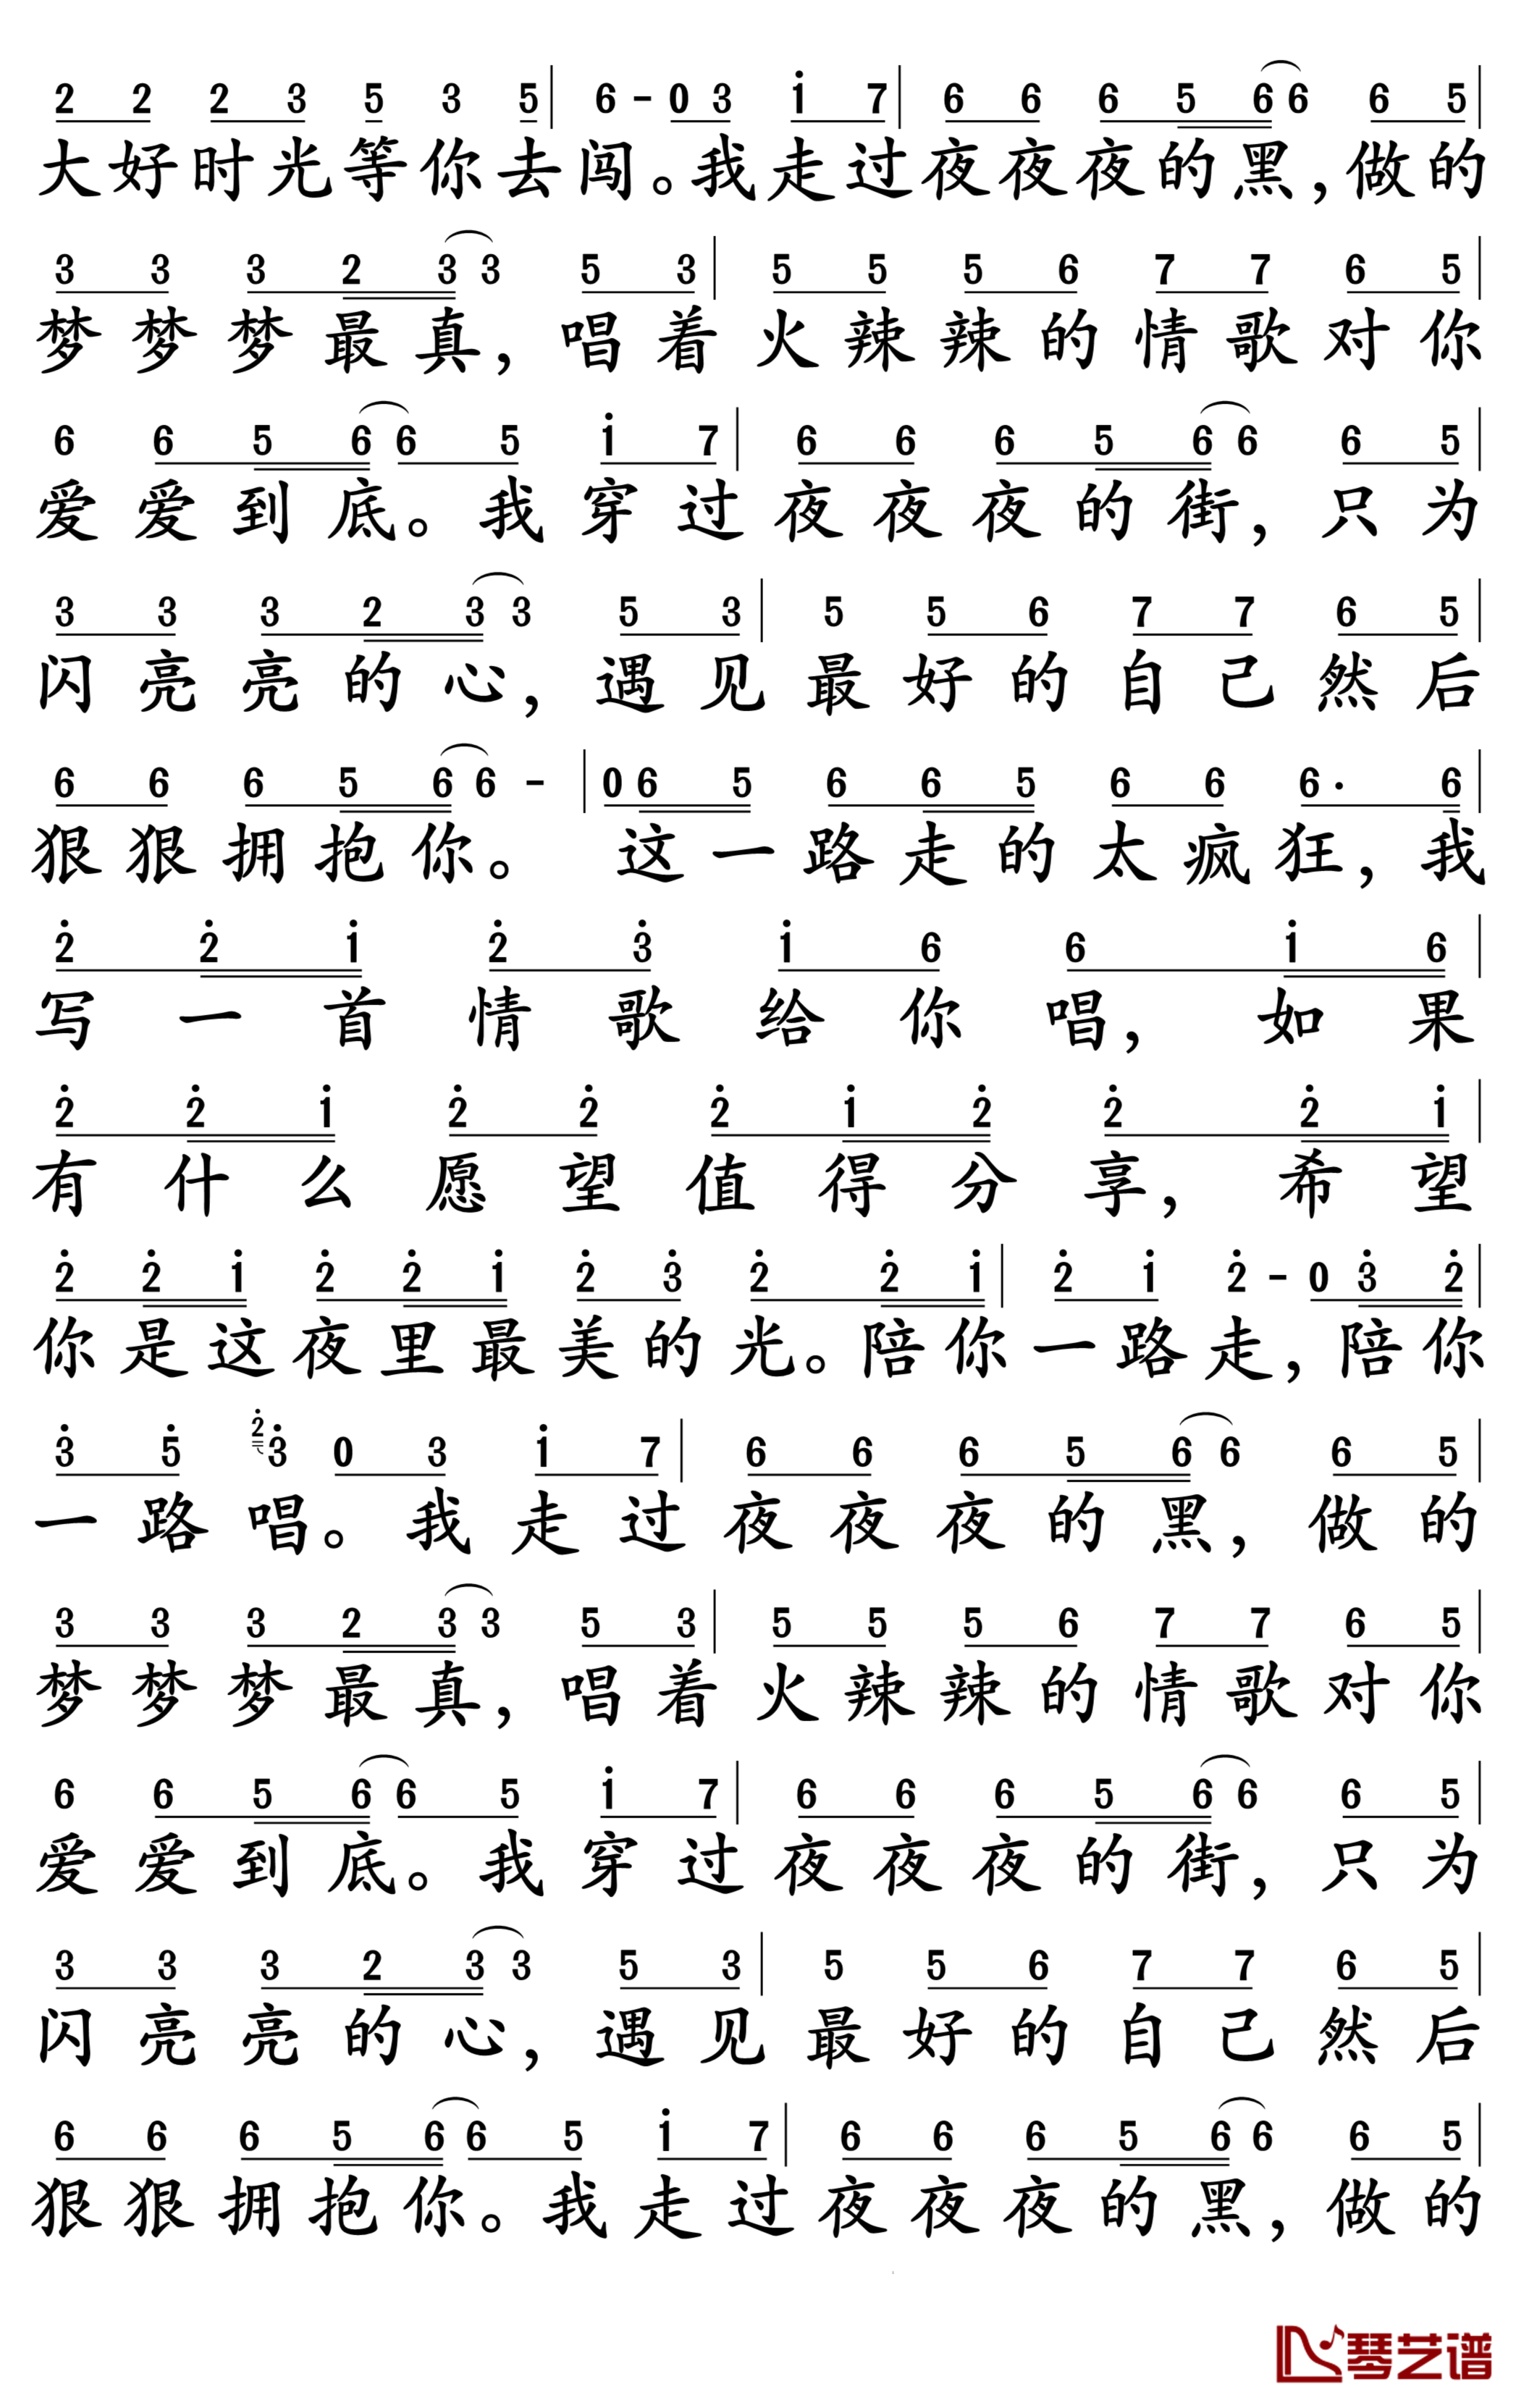 2 2 2 3 5 3 5 | 6 - 0 3 i 7 | 6 6 6 5 6 6 6 5 |
大好时光等你去闯。我走过夜夜夜的黑,做的
3 3 3 2 3 3 5 3 | 5 5 5 6 7 7 6 5 |
梦梦梦最真,唱着火辣辣的情歌对你
6 6 5 6 6 5 i 7 | 6 6 6 5 6 6 6 5 |
爱爱到底。我穿过夜夜夜的街,只为
3 3 3 2 3 3 5 3 | 5 5 6 7 7 6 5 |
闪亮亮的心,遇见最好的自己然后
6 6 6 5 6 6 - | 0 6 5 6 6 5 6 6 6· 6 |
狠狠拥抱你。这一路走的太疯狂,我
2̇ 2̇ i 2̇ 3̇ i 6 6 i 6 |
写一首情歌给你唱,如果
2̇ 2̇ i 2̇ 2̇ 2̇ i 2̇ 2̇ 2̇ i |
有什么愿望值得分享,希望
2̇ 2̇ i 2̇ 2̇ i 2̇ 3̇ 2̇ 2̇ i | 2̇ i 2̇ - 0 3̇ 2̇ |
你是这夜里最美的光。陪你一路走,陪你
3̇ 5̇ 2̇ 3̇ 0 3 i 7 | 6 6 6 5 6 6 6 5 |
一路唱。我走过夜夜夜的黑,做的
3 3 3 2 3 3 5 3 | 5 5 5 6 7 7 6 5 |
梦梦梦最真,唱着火辣辣的情歌对你
6 6 5 6 6 5 i 7 | 6 6 6 5 6 6 6 5 |
爱爱到底。我穿过夜夜夜的街,只为
3 3 3 2 3 3 5 3 | 5 5 6 7 7 6 5 |
闪亮亮的心,遇见最好的自己然后
6 6 6 5 6 6 5 i 7 | 6 6 6 5 6 6 6 5 |
狠狠拥抱你。我走过夜夜夜的黑,做的
琴艺谱